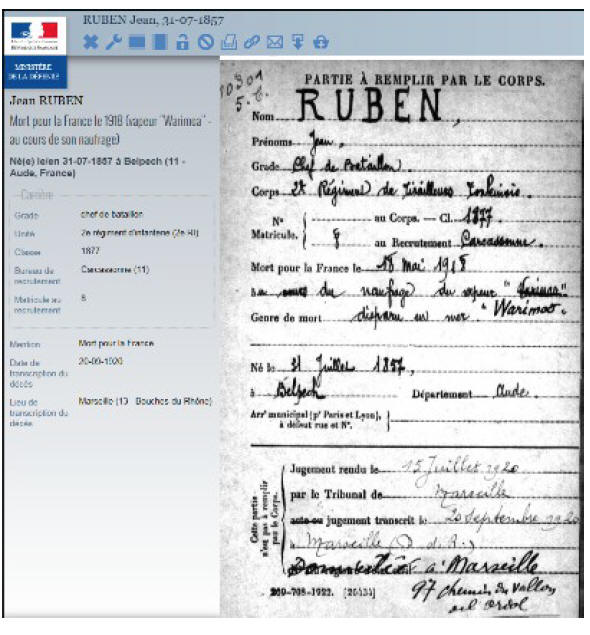 RUBEN Jean, 31-07-1857
MINISTÈRE
DE LA DÉFENSE
Jean RUBEN
Mort pour la France le 1918 (vapeur "Warimoa" -
au cours de son naufrage)
Né(e) le/en 31-07-1857 à Belpech (11 -
Aude, France)
Carrière
Grade chef de bataillon
Unité 2e régiment d'infanterie (2e RI)
Classe 1877
Bureau de recrutement Carcassonne (11)
Matricule au recrutement 8
Mention Mort pour la France
Date de transcription du décès 20-09-1920
Lieu de transcription du décès Marseille (13 - Bouches du Rhône)
10301
5.6.
PARTIE À REMPLIR PAR LE CORPS.
Nom RUBEN,
Prénoms Jean,
Grade Chef de Bataillon
Corps 2e Régiment de Tirailleurs Tonkinois.
N° Matricule. au Corps. — Cl. 1877
8 au Recrutement Carcassonne.
Mort pour la France le 18 Mai 1918
au cours du naufrage du vapeur
Genre de mort disparu en mer. "Warimoo".
Né le 31 Juillet 1857,
à Belpech Département Aude.
Arr^t municipal (p^r Paris et Lyon),
à défaut rue et N°.
Cette partie n'est pas à remplir par le Corps.
Jugement rendu le 15 Juillet 1920
par le Tribunal de Marseille
acte ou jugement transcrit le 20 Septembre 1920
à Marseille (B. d. R.)
à Marseille
209-708-1922. [26434]
97 chemin du Vallon